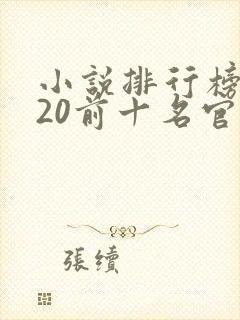 小説排行榜
20前十名官
張續